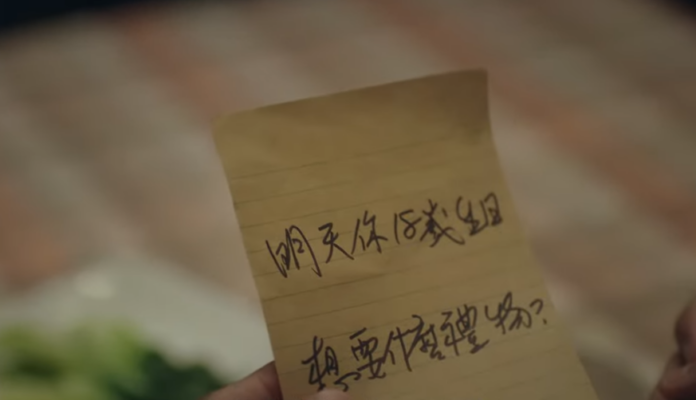 明天你18歲生日
想要什麼禮物?